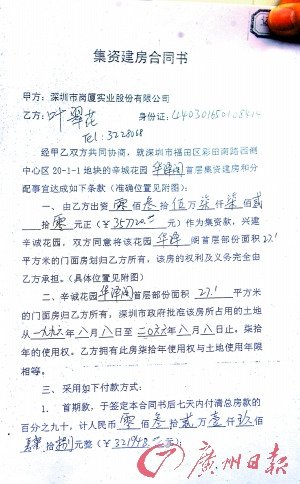 集资建房合同书
甲方：深圳市岗厦实业股份有限公司
乙方：叶翠花 身份证：
Tel: 3228068
经甲乙双方共同协商，就深圳市福田区彩田南路西侧
中心区 20-1-1 地块的辛城花园 华泽阁 首层集资建房和分
配事宜达成如下条款（准确位置见附图）：
一、由乙方出资 零 佰 叁 拾 伍 万 柒 仟 柒 佰 贰
拾 零 元正（￥357720.00 元）作为集资款，兴建
辛诚花园，双方同意将该花园 华泽 阁首层部份面积 27.1
平方米的门面房划归乙方所有，该房的权利及义务完全由
乙方承担。（具体位置见附图）
二、辛诚花园 华泽阁 首层部份面积 27.1 平方米
的门面房归乙方所有，深圳市政府批准该房所占用的土地
从一九九六年八月八日至二0六六年八月八日止。柒拾
年的使用权。乙方拥有此房柒拾年使用权与土地使用年限
相等。
三、采用如下付款方式：
1. 首期款，于签定本合同书后七天内付清总房款的
百分之九十，计人民币 零 佰 叁 拾 贰 万 壹 仟 玖 佰
肆 拾 捌 元整（￥321948.00 元）；
广州日报